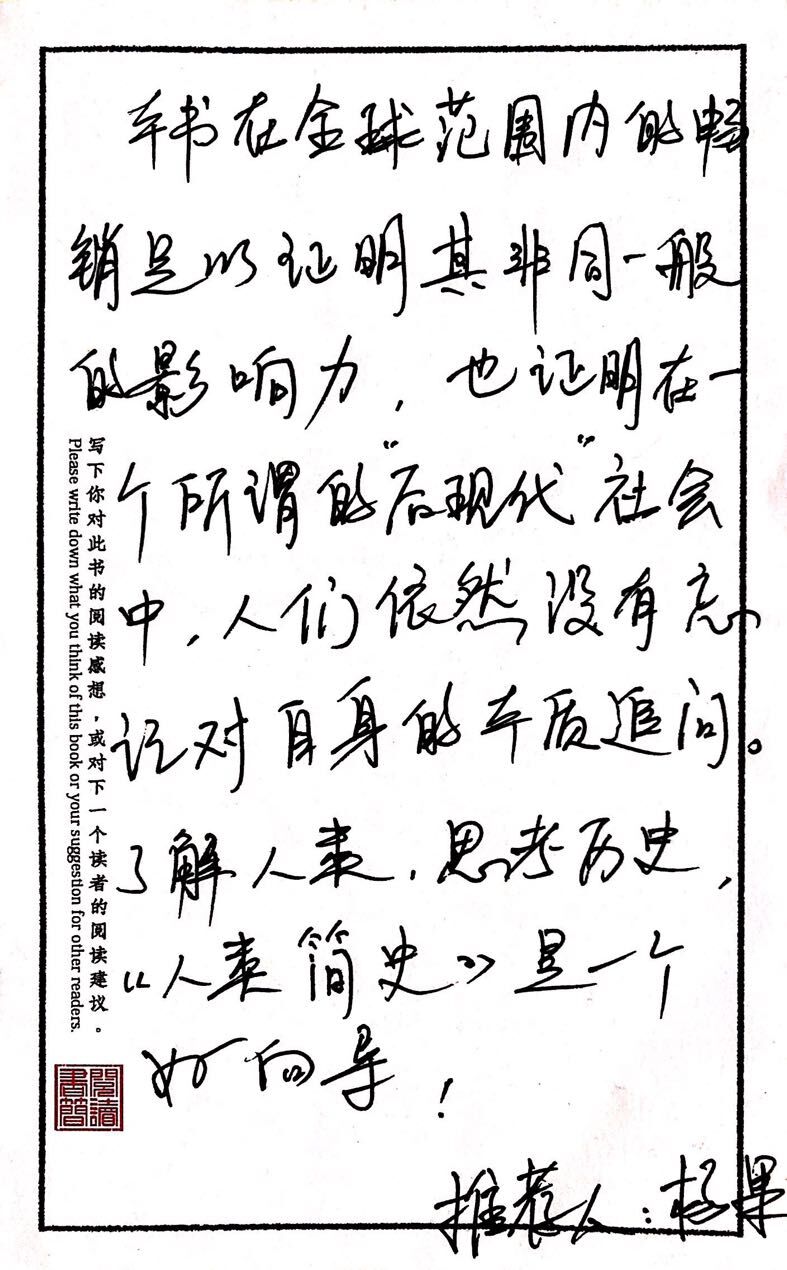 本书在全球范围内的畅
销足以证明其非同一般
的影响力，也证明在一
个所谓的“后现代”社会
中，人们依然没有忘
记对自身的本质追问。
了解人类，思考历史，
《人类简史》是一个
好向导！
推荐人：杨果
写下你对此书的阅读感想，或对下一个读者的阅读建议。
Please write down what you think of this book or your suggestion for other readers.
閱讀
書簡